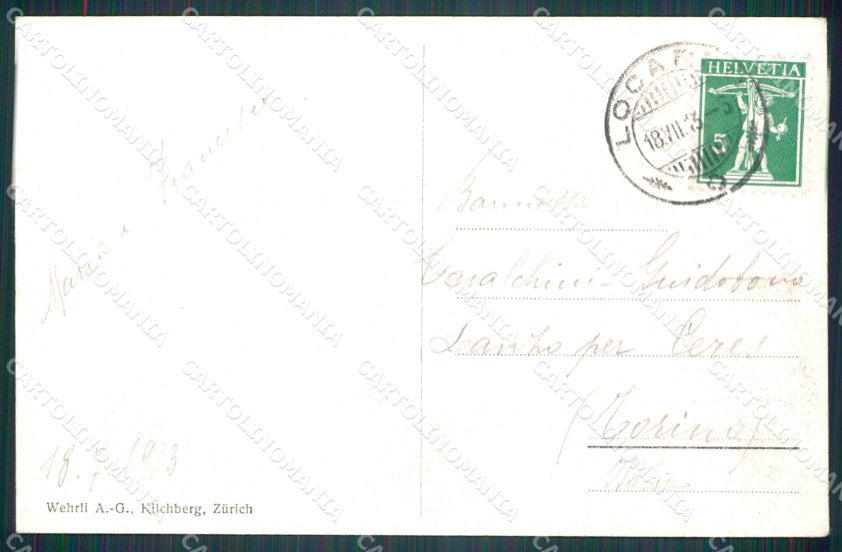 HELVETIA
5
LOCARNO
18.VII.13.-5
Maria e Francesco
18.7.1913
Guidobono
Lanzo per Ceres
(Torino)
Italia
Wehrli A.-G., Kilchberg, Zürich
CARTOLINOMANIA